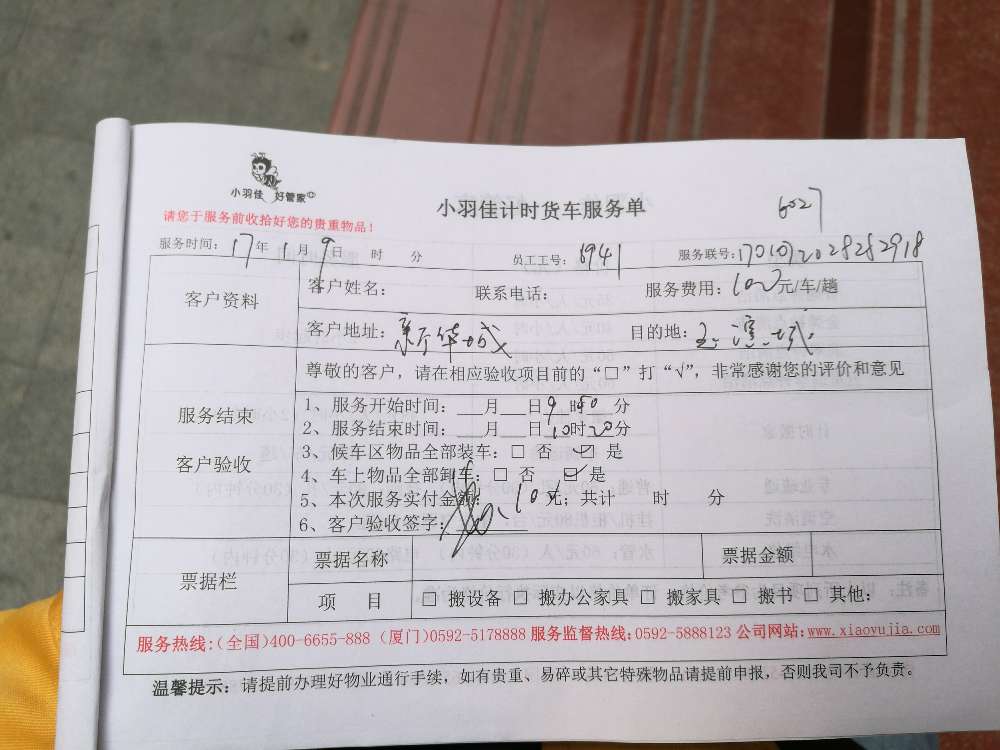 小羽佳 好管家
请您于服务前收拾好您的贵重物品!
小羽佳计时货车服务单
6027
服务时间: 17年 1月 9日 时 分 员工工号: 6941 服务联号:
客户资料
客户姓名: 联系电话: 服务费用: 100元/车/趟
客户地址: 新华城 目的地:
尊敬的客户,请在相应验收项目前的“□”打“√”,非常感谢您的评价和意见
服务结束
客户验收
1、服务开始时间:___月___日 9时 分
2、服务结束时间:___月___日 10时20分
3、候车区物品全部装车:□ 否 ☑ 是
4、车上物品全部卸车:□ 否 ☑ 是
5、本次服务实付金额: 元;共计 时 分
6、客户验收签字:
票据栏
票据名称 票据金额
项 目 □ 搬设备 □ 搬办公家具 □ 搬家具 □ 搬书 □ 其他:
服务热线:(全国)400-6655-888 (厦门)0592-5178888 服务监督热线:0592-5888123 公司网站:www.xiaoyujia.com
温馨提示:请提前办理好物业通行手续,如有贵重、易碎或其它特殊物品请提前申报,否则我司不予负责。